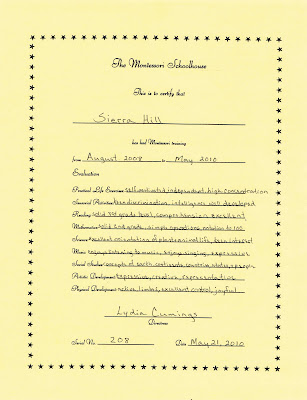 The Montessori Schoolhouse
This is to certify that
Sierra Hill
has had Montessori training
from August 2008 to May 2010
Evaluation
Practical Life Exercises self-motivated, independent, high concentration
Sensorial Activities keen discrimination, intelligence well developed
Reading solid 3rd grade level, comprehension excellent
Mathematics solid 2nd grade, simple operations, notation to 100
Science excellent orientation of plant-animal life, keen interest
Music enjoys listening to music, enjoys singing, expressive
Social Studies concepts of earth, continents, countries, states, people
Artistic Development expressive, creative, representative
Physical Development active, limber, excellent control, joyful
Lydia Cumings
Directress
Serial No. 208 Date May 21, 2010